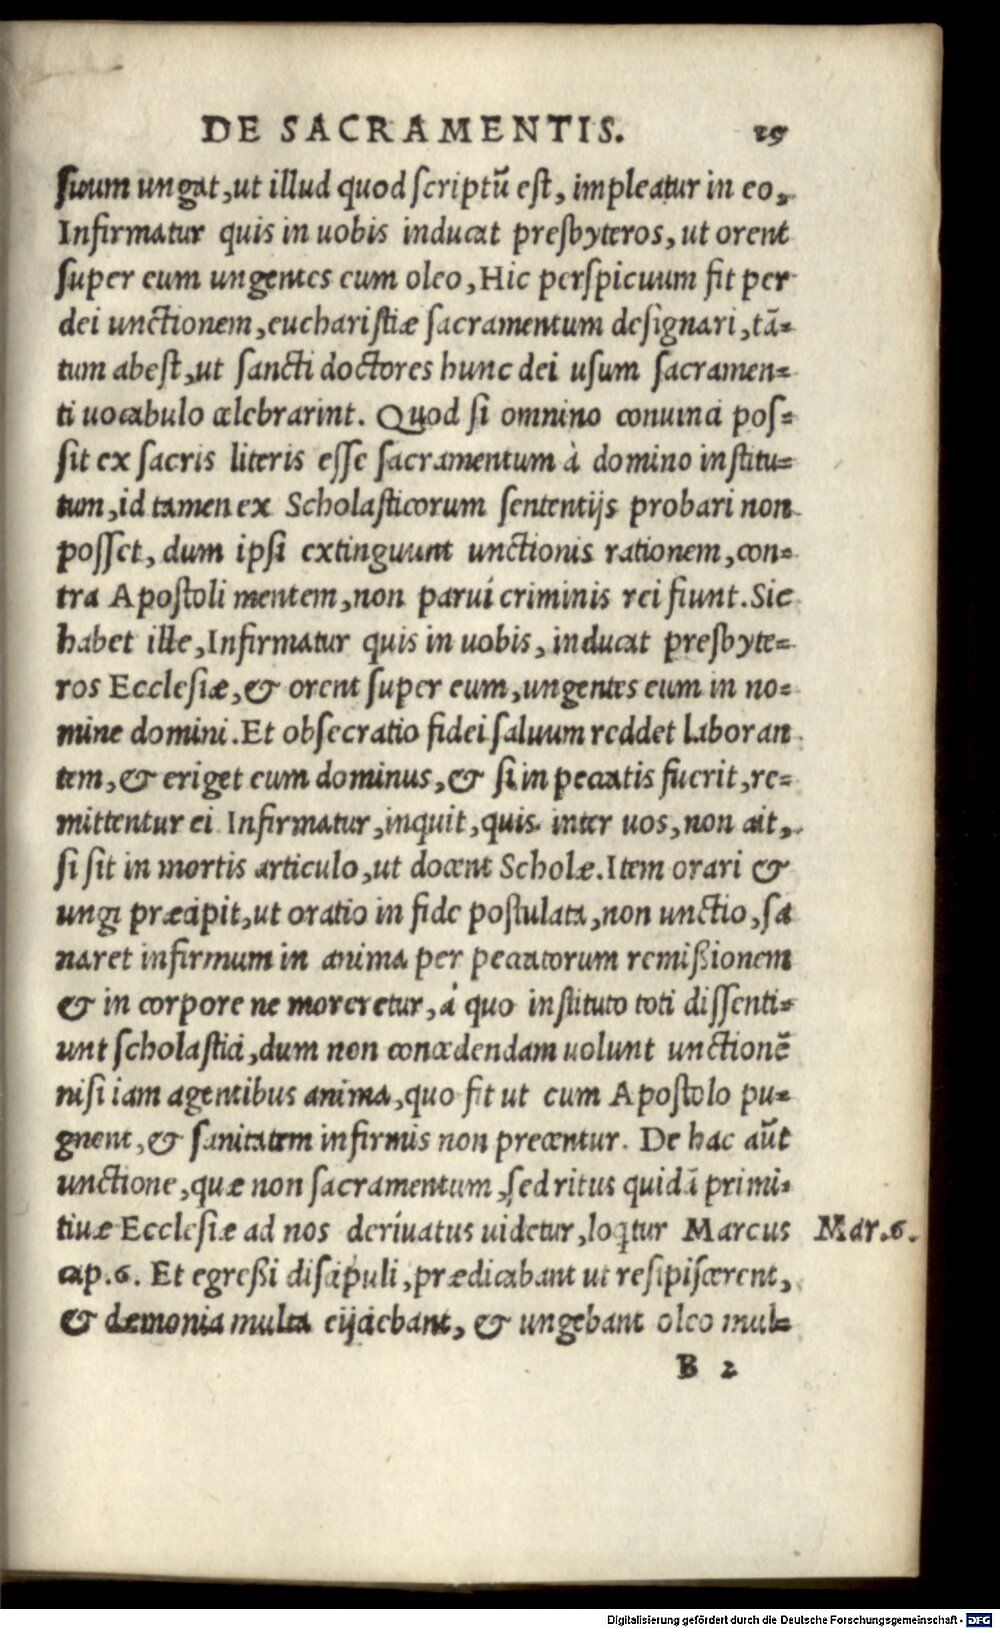 DE SACRAMENTIS. 19
suum ungat, ut illud quod scriptū est, impleatur in eo,
Infirmatur quis in uobis inducat presbyteros, ut orent
super eum ungentes eum oleo, Hic perspicuum fit per
dei unctionem, eucharistiæ sacramentum designari, tā=
tum abest, ut sancti doctores hunc dei usum sacramen=
ti uocabulo celebrarint. Quod si omnino conuinci pos=
sit ex sacris literis esse sacramentum à domino institu=
tum, id tamen ex Scholasticorum sententijs probari non
posset, dum ipsi extinguunt unctionis rationem, con=
tra Apostoli mentem, non parui criminis rei fiunt. Sic
habet ille, Infirmatur quis in uobis, inducat presbyte=
ros Ecclesiæ, & orent super eum, ungentes eum in no=
mine domini. Et obsecratio fidei saluum reddet laboran
tem, & eriget eum dominus, & si in peccatis fuerit, re=
mittentur ei Infirmatur, inquit, quis inter uos, non ait,
si sit in mortis articulo, ut docent Scholæ. Item orari &
ungi præcipit, ut oratio in fide postulata, non unctio, sa
naret infirmum in anima per peccatorum remißionem
& in corpore ne moreretur, à quo instituto toti dissenti=
unt scholastici, dum non concedendam uolunt unctionē
nisi iam agentibus anima, quo fit ut cum Apostolo pu=
gnent, & sanitatem infirmis non precentur. De hac aūt
unctione, quæ non sacramentum, sed ritus quidā primi=
tiuæ Ecclesiæ ad nos deriuatus uidetur, loqtur Marcus Mar.6.
cap.6. Et egreßi discipuli, prædicabant ut resipiscerent,
& dæmonia multa eijciebant, & ungebant oleo mul=
B 2
Digitalisierung gefördert durch die Deutsche Forschungsgemeinschaft - DFG